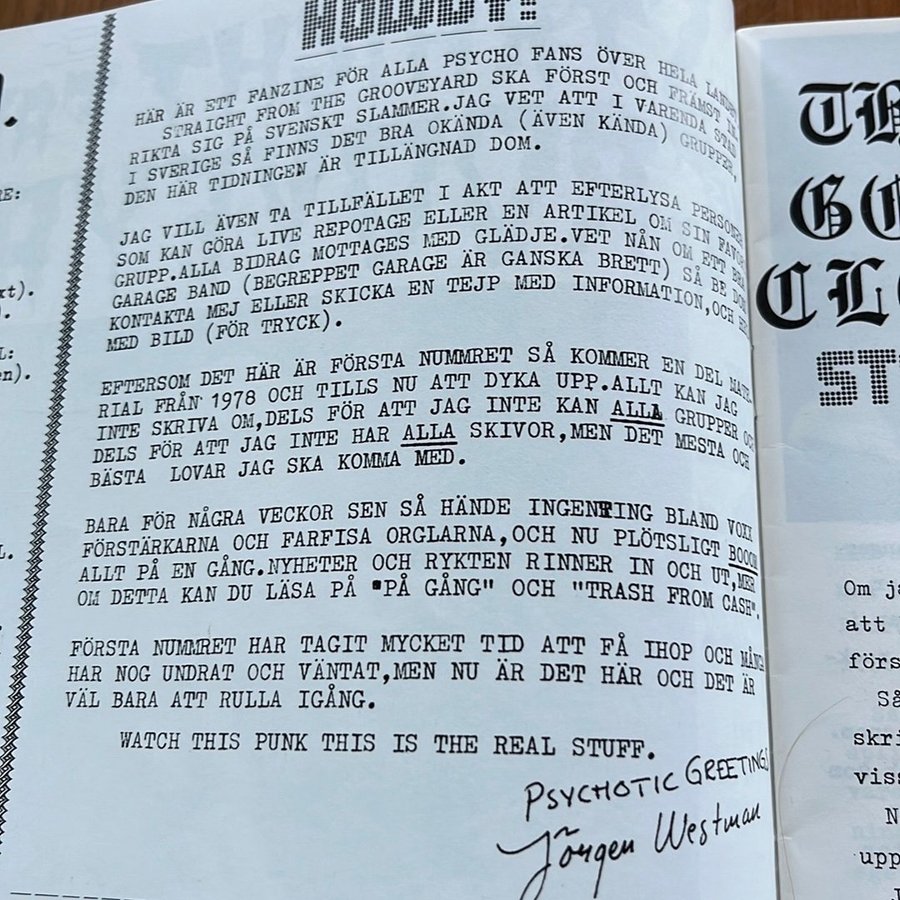 HOWDY!
HÄR ÄR ETT FANZINE FÖR ALLA PSYCHO FANS ÖVER HELA
STRAIGHT FROM THE GROOVEYARD SKA FÖRST OCH FRÄMST
RIKTA SIG PÅ SVENSKT SLAMMER.JAG VET ATT I VARENDA STAD
I SVERIGE SÅ FINNS DET BRA OKÄNDA (ÄVEN KÄNDA) GRUPPER,
DEN HÄR TIDNINGEN ÄR TILLÄNGNAD DOM.
JAG VILL ÄVEN TA TILLFÄLLET I AKT ATT EFTERLYSA
SOM KAN GÖRA LIVE REPOTAGE ELLER EN ARTIKEL OM SIN
GRUPP.ALLA BIDRAG MOTTAGES MED GLÄDJE.VET NÅN OM ETT BRA
GARAGE BAND (BEGREPPET GARAGE ÄR GANSKA BRETT) SÅ BE DOM
KONTAKTA MEJ ELLER SKICKA EN TEJP MED INFORMATION,OCH
MED BILD (FÖR TRYCK).
EFTERSOM DET HÄR ÄR FÖRSTA NUMMRET SÅ KOMMER EN DEL MATE-
RIAL FRÅN 1978 OCH TILLS NU ATT DYKA UPP.ALLT KAN JAG
INTE SKRIVA OM,DELS FÖR ATT JAG INTE KAN ALLA GRUPPER
DELS FÖR ATT JAG INTE HAR ALLA SKIVOR,MEN DET MESTA OCH
BÄSTA LOVAR JAG SKA KOMMA MED.
BARA FÖR NÅGRA VECKOR SEN SÅ HÄNDE INGENTING BLAND VOXX
FÖRSTÄRKARNA OCH FARFISA ORGLARNA,OCH NU PLÖTSLIGT BOOOM
ALLT PÅ EN GÅNG.NYHETER OCH RYKTEN RINNER IN OCH UT,MER
OM DETTA KAN DU LÄSA PÅ "PÅ GÅNG" OCH "TRASH FROM CASH".
FÖRSTA NUMMRET HAR TAGIT MYCKET TID ATT FÅ IHOP OCH MÅNGA
HAR NOG UNDRAT OCH VÄNTAT,MEN NU ÄR DET HÄR OCH DET ÄR
VÄL BARA ATT RULLA IGÅNG.
WATCH THIS PUNK THIS IS THE REAL STUFF.
PSYCHOTIC GREETINGS
Jörgen Westman
Om
att